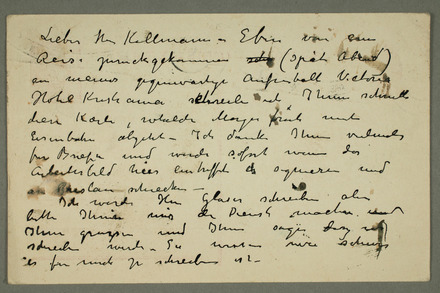 Lieber Herr Kollmann – Eben von einer
Reise zurückgekommen (spät Abend)
en meines gegenwärtige Aufenthalt Victoria
Hotel Kristiania schreibe ich Ihnen schnell
diese Karte, Morgen früh mit
Eisenbahn abgeht – Ich danke Ihnen vielmals
für Briefe und werde sofort wenn das
hier eintrifft es signieren und
an schicken –
Ich werde Herr Glaser schreiben aber
bitte Ihnen mir den Dienst machen
Ihm grüssen und Ihm sagen
schreiben werde – Sie wissen wie schwer
es für mich zu schreiben ist –